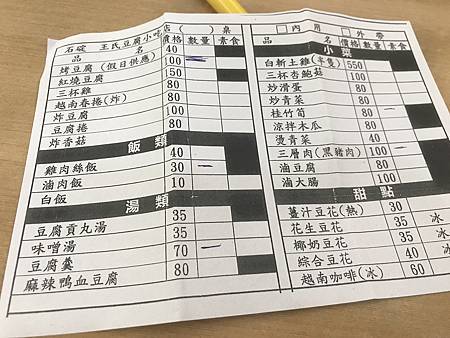 石碇 王氏豆腐小吃店 ( ) 桌
品名 價格 數量 素食
烤豆腐 (假日供應) 40
紅燒豆腐 100
三杯雞 150
越南春捲(炸) 100
炸豆腐 80
豆腐捲 100
炸香菇 80
飯類
雞肉絲飯 40
滷肉飯 30
白飯 10
湯類
豆腐貢丸湯 35
味噌湯 35
豆腐羹 70
麻辣鴨血豆腐 80
□內用 □外帶
品名 價格 數量 素食
小菜
白斬土雞(半隻) 550
三杯杏鮑菇 100
炒滑蛋 80
炒青菜 100
桂竹筍 100
涼拌木瓜 80
燙青菜 40
三層肉(黑豬肉) 100
滷豆腐 80
滷大腸 100
甜點
薑汁豆花(熱) 30
花生豆花 35 冰
椰奶豆花 35 冰
綜合豆花 40 冰
越南咖啡(冰) 60